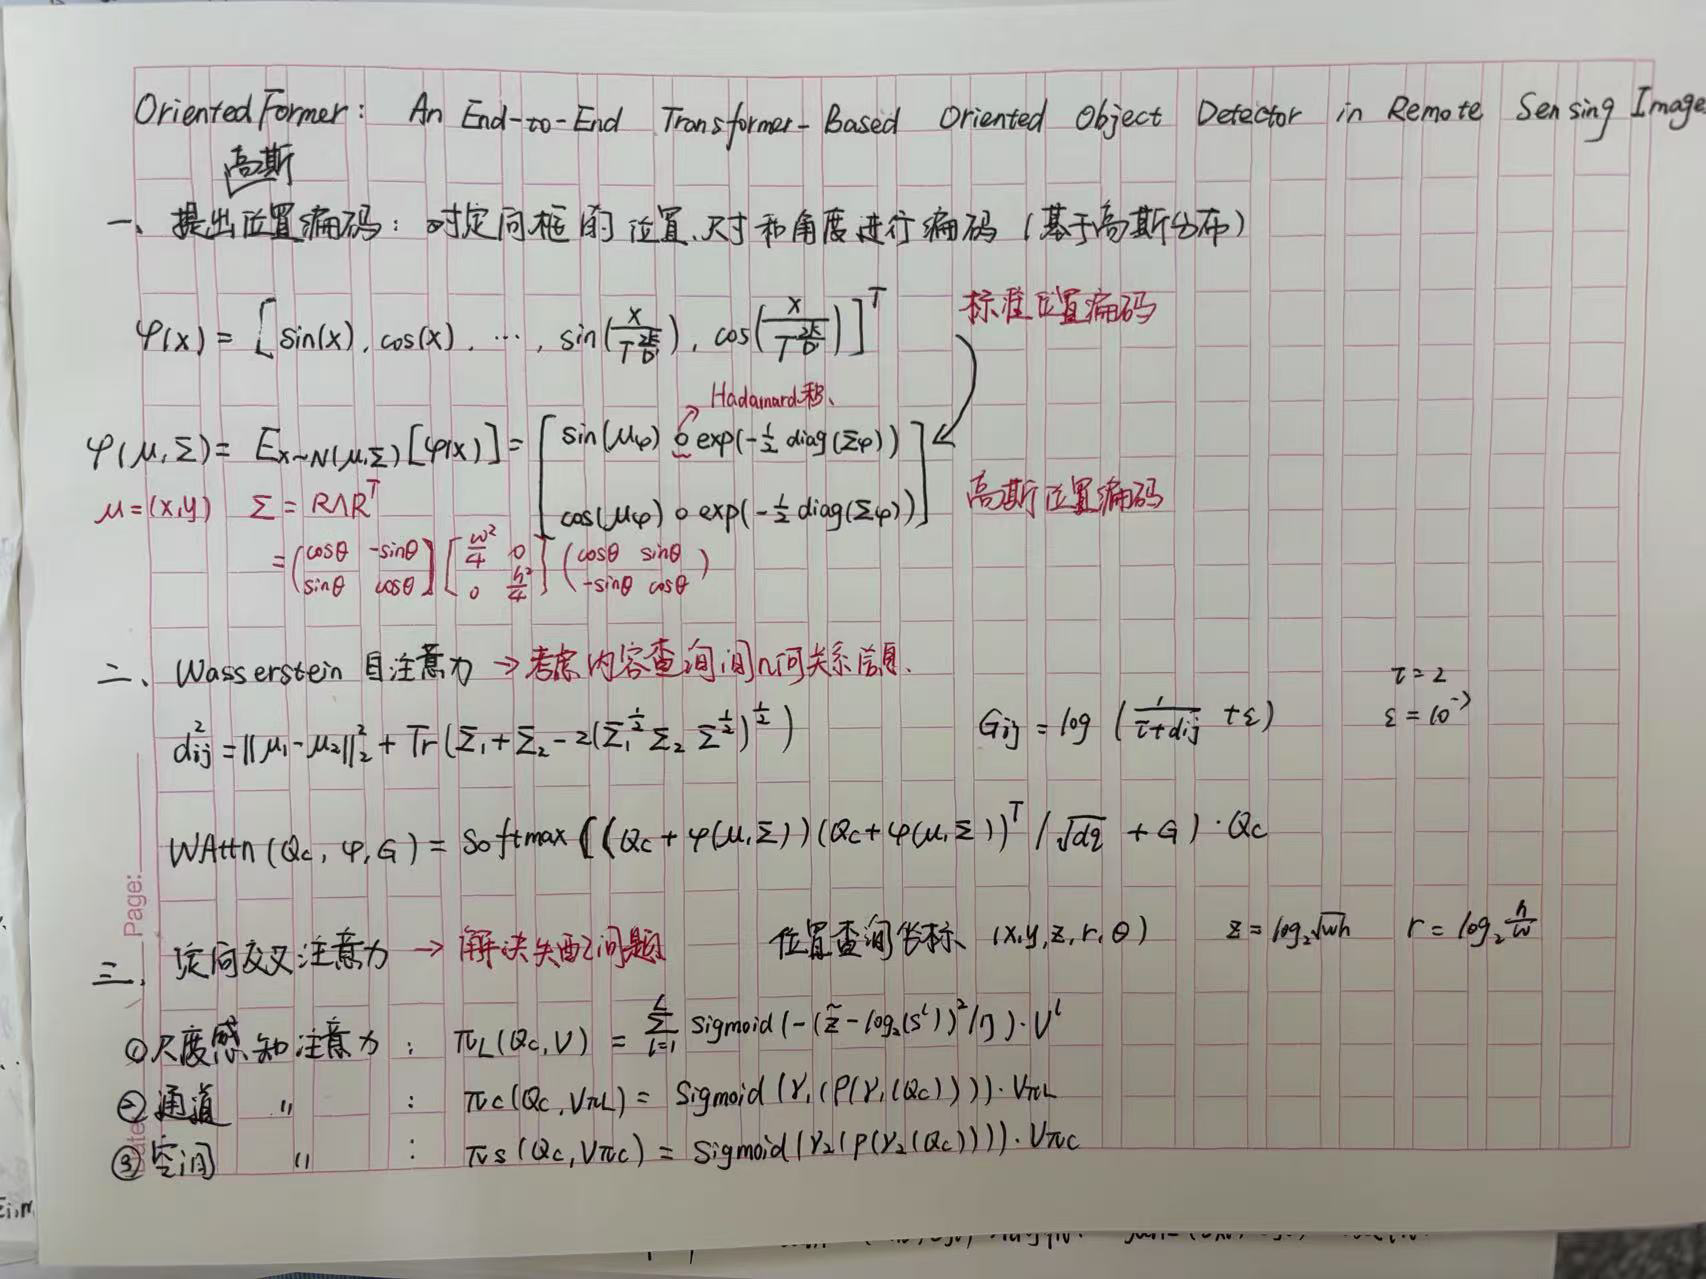 OrientedFormer: An End-to-End Transformer-Based Oriented Object Detector in Remote Sensing Image
高斯
一、提出位置编码：对定向框的位置、尺寸和角度进行编码（基于高斯分布）
φ(x) = [sin(x), cos(x), ⋯, sin(x/T^(2k/D)), cos(x/T^(2k/D))]^T
标准位置编码
Hadamard积、
φ(μ,Σ) = E_{x~N(μ,Σ)}[φ(x)] = [sin(μφ) ∘ exp(-1/2 diag(Σφ))
cos(μφ) ∘ exp(-1/2 diag(Σφ))]
高斯位置编码
μ=(x,y) Σ = RΛR^T
= (cosθ -sinθ
sinθ cosθ) [w²/4 0
0 h²/4] (cosθ sinθ
-sinθ cosθ)
二、Wasserstein 自注意力 → 考虑内容查询间几何关系信息.
τ=2
d²ij = ||μ₁-μ₂||²₂ + Tr(Σ₁+Σ₂-2(Σ₁^(1/2) Σ₂ Σ^(1/2))^(1/2))
Gij = log(1/(τ+dij) +ε)
ε=10^-7
WAttn(Qc, φ, G) = Softmax((Qc+φ(μ,Σ))(Qc+φ(μ,Σ))^T/√dq + G)·Qc
三、定向交叉注意力 → 解决失配问题
位置查询坐标、(x,y,z,r,θ) z=log₂√wh r=log₂ h/w
①尺度感知注意力： π_L(Qc,V) = Σ_{l=1}^{L} Sigmoid(-(z̃-log₂(s^l))²/η)·V^l
②通道 〃 : πc(Qc,VπL) = Sigmoid(γ₁(P(γ₁(Qc))))·VπL
③空间 〃 : πs(Qc,Vπc) = Sigmoid(γ₂(P(γ₂(Qc))))·Vπc
Page: